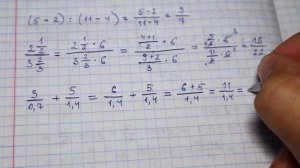 (5 - 2) : (11 - 4) = \frac{5-2}{11-4} = \frac{3}{7}
\frac{2\frac{1}{2}}{3\frac{2}{3}} = \frac{2\frac{1}{2} \cdot 6}{3\frac{2}{3} \cdot 6} = \frac{\frac{4+1}{2} \cdot 6}{\frac{9+2}{3} \cdot 6} = \frac{\frac{5}{2} \cdot 6^3}{\frac{11}{3} \cdot 6^2} = \frac{15}{22}
\frac{3}{0,7} + \frac{5}{1,4} = \frac{6}{1,4} + \frac{5}{1,4} = \frac{6+5}{1,4} = \frac{11}{1,4} =